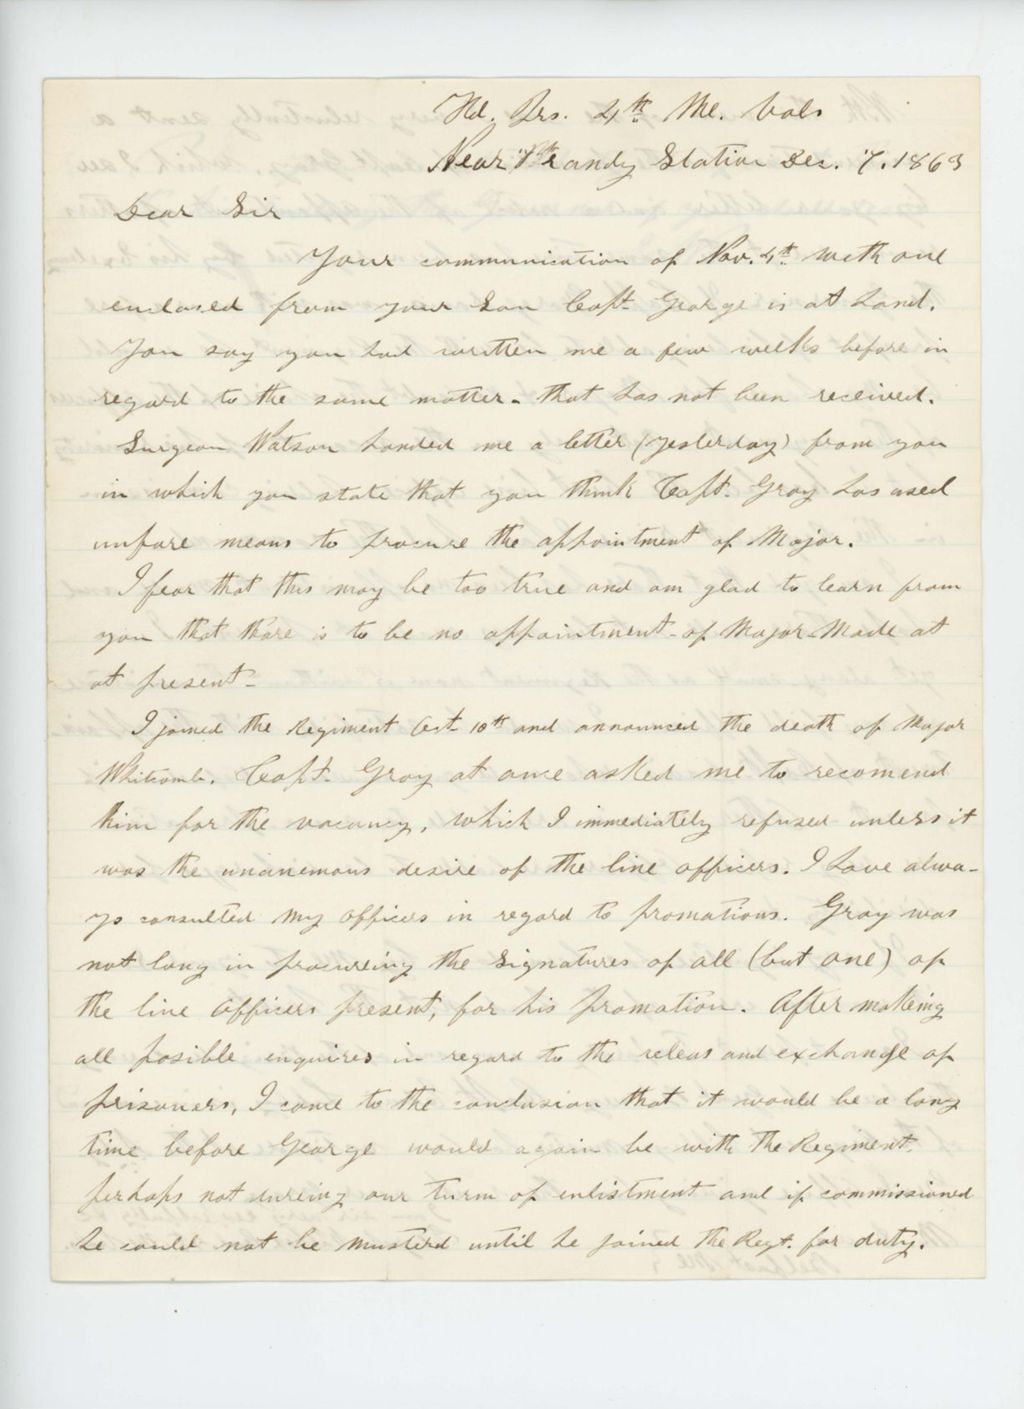 Hd. Qrs. 4th Me. Vols
Near Brandy Station Dec. 7. 1863
Dear Sir
Your communication of Nov. 4th with one
enclosed from your Son Capt. George is at hand.
You say you had written me a few weeks before in
regard to the same matter - that has not been received.
Surgeon Watson handed me a letter (yesterday) from you
in which you state that you think Capt. Gray has used
unfare means to procure the appointment of Major.
I fear that this may be too true and am glad to learn from
you that there is to be no appointment of Major Made at
at present -
I joined the Regiment Oct 10th and announced the death of Major
Whitcomb. Capt. Gray at once asked me to recomend
him for the vacancy, which I immediately refused unless it
was the unanemous desire of the line officers. I have alwa-
ys consulted my officers in regard to promotions. Gray was
not long in procureing the Signatures of all (but one) of
the line officers present, for his promotion. After makeing
all posible enquires in regard to the releas and exchange of
prisoners, I come to the conclusion that it would be a long
time before George would again be with the Regiment.
perhaps not dureing our turm of enlistment and if commissioned
he could not be musterd until he joined the Regt. for duty.